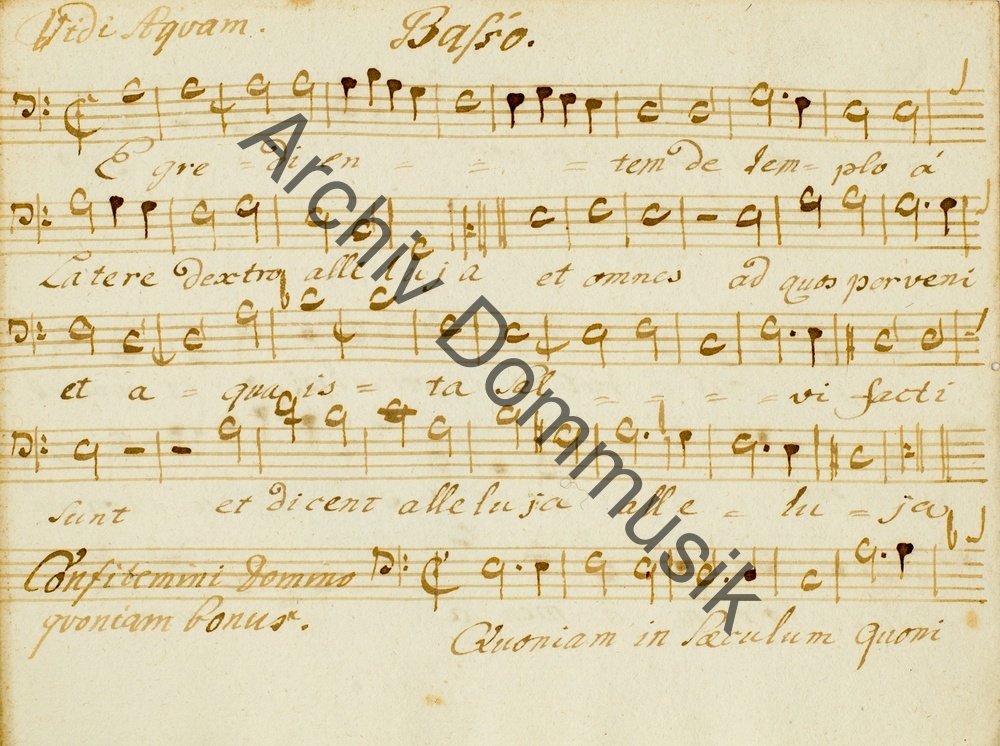 Vidi Aquam. Basso.
Egre - dien - - - tem de tem - plo á
Latere dextro alleluja et omnes ad quos perveni
et a - qua is - ta sal - - - - vi facti
sunt et dicent alleluja alle - lu - ja
Confitemini Domino
quoniam bonus. Quoniam in sæculum quoni
Archiv Dommusik